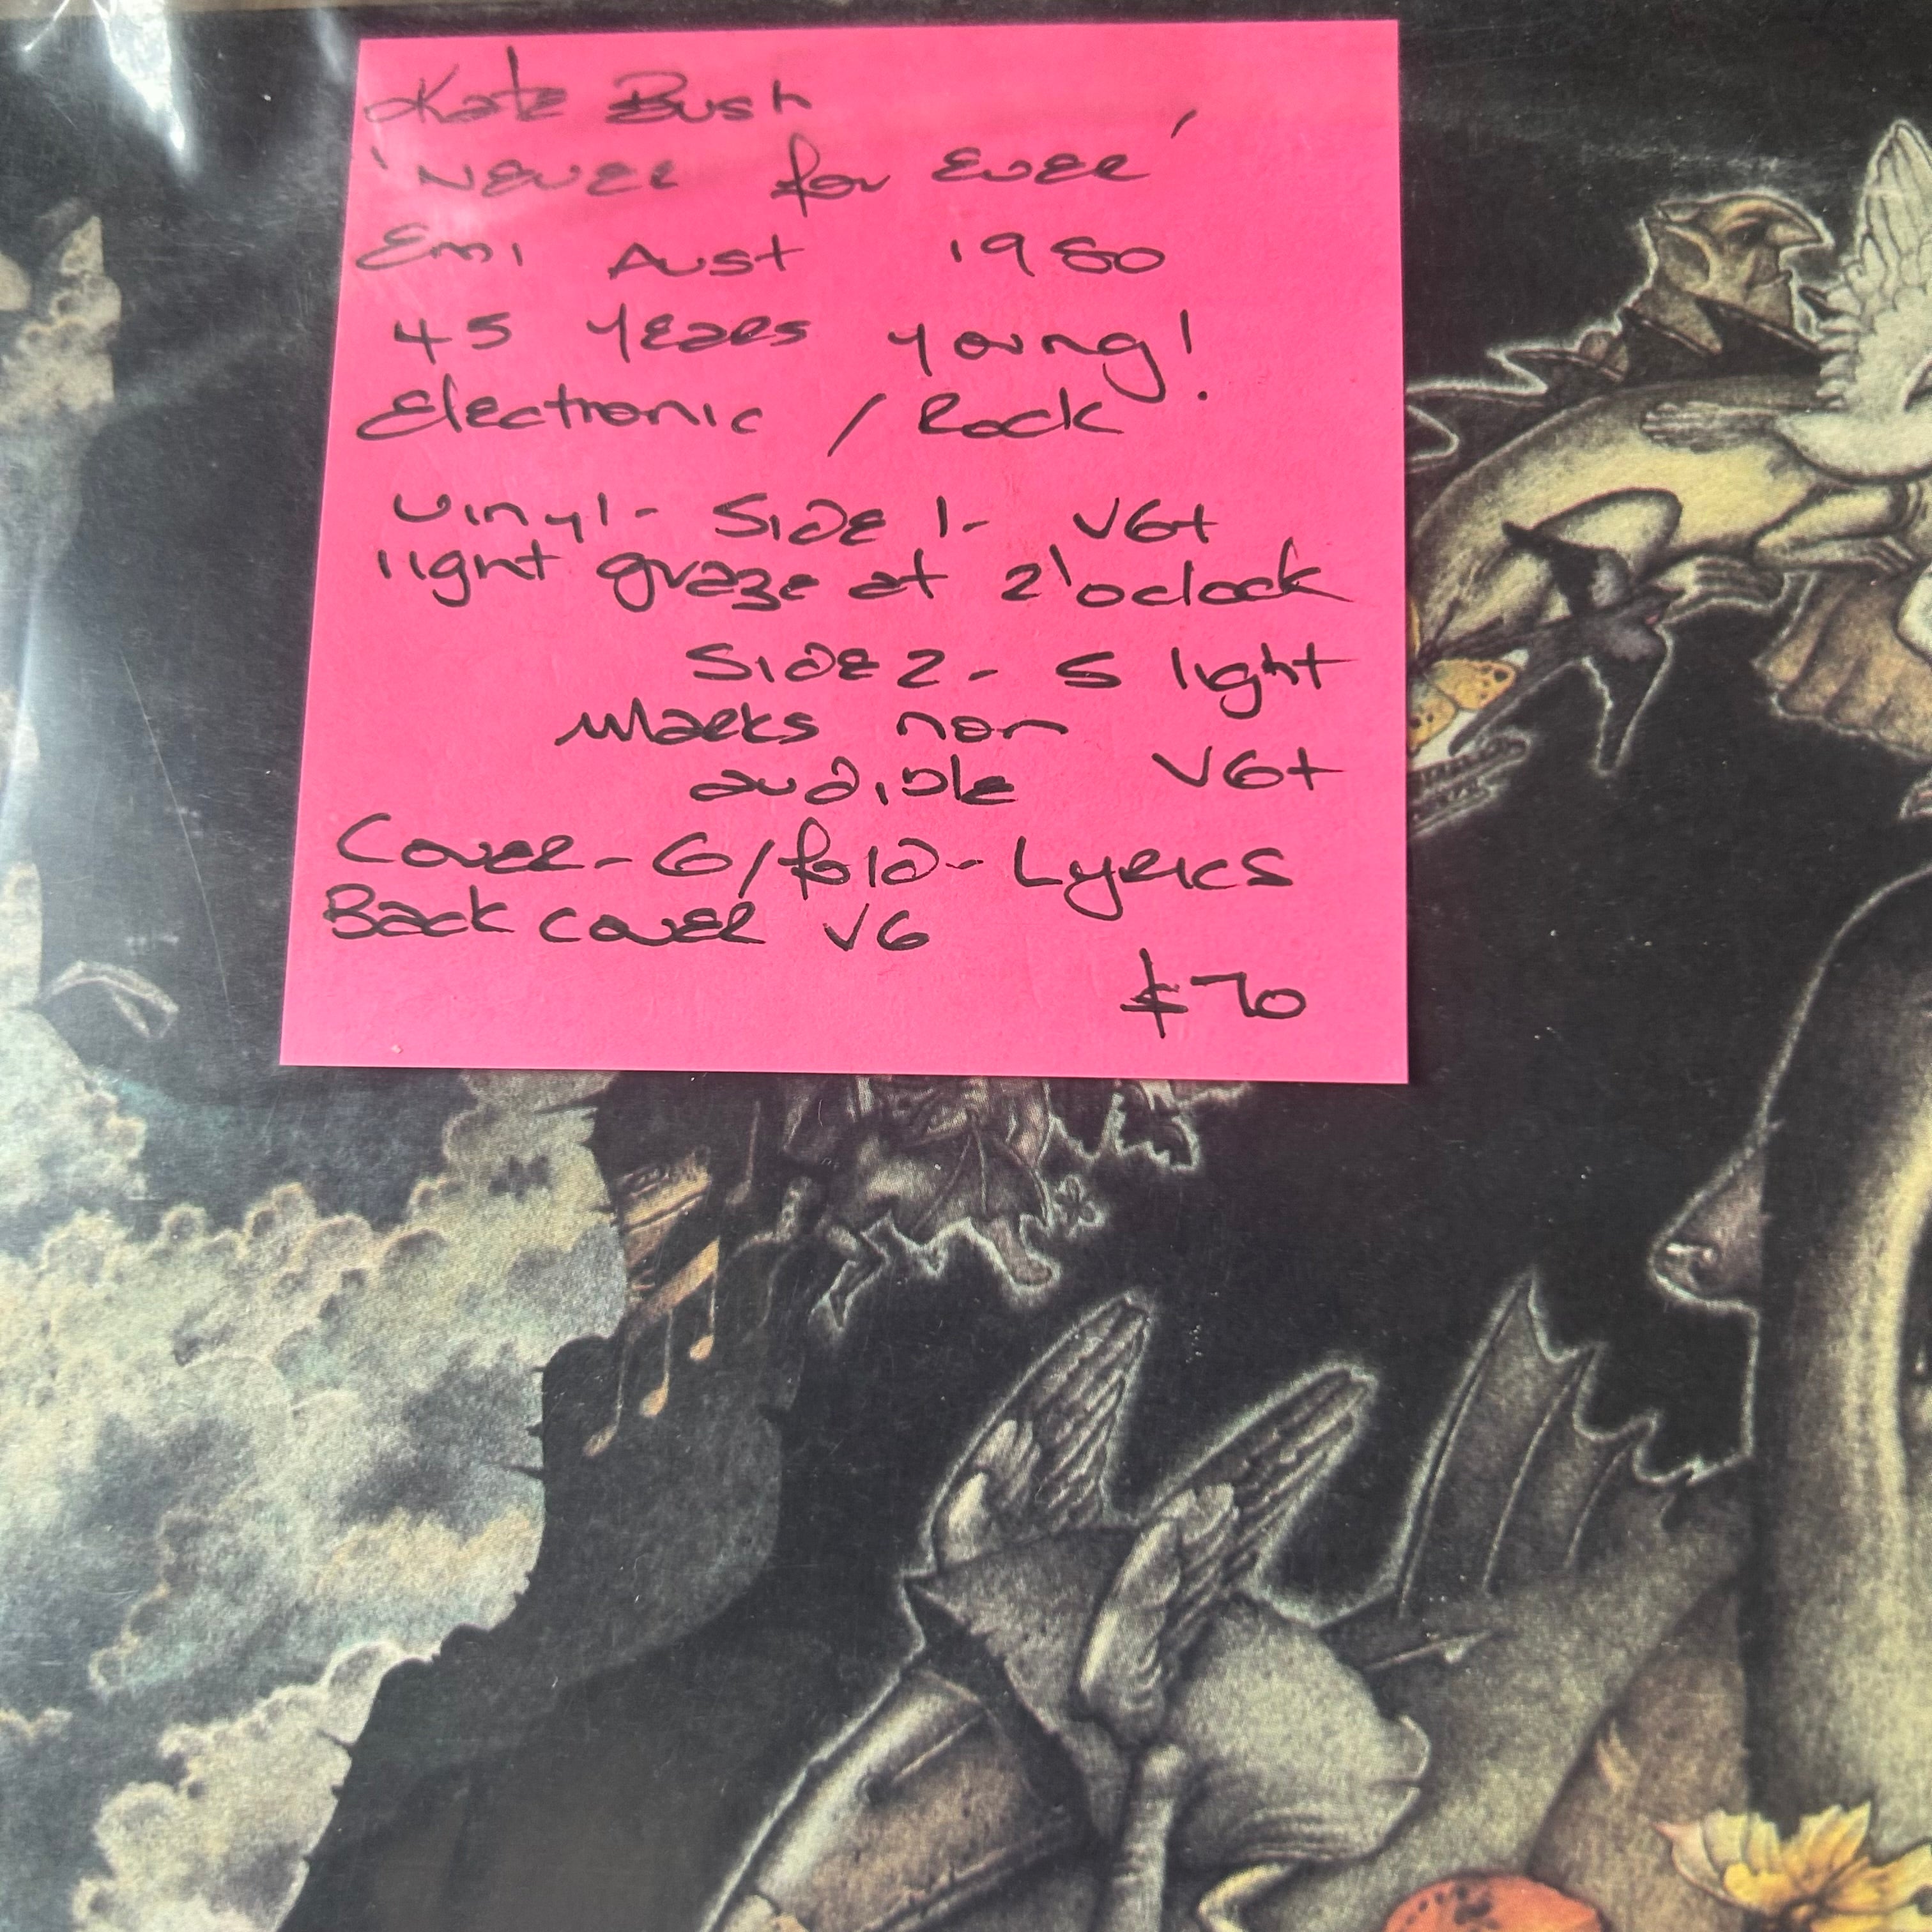 Kate Bush
'Never for Ever'
Emi Aust 1980
45 Years young!
Electronic / Rock
Vinyl - Side 1 - VG+
light graze at 2'oclock
Side 2 - 5 light
Marks non
audible VG+
Cover - G/fold - Lyrics
Back cover VG
$70